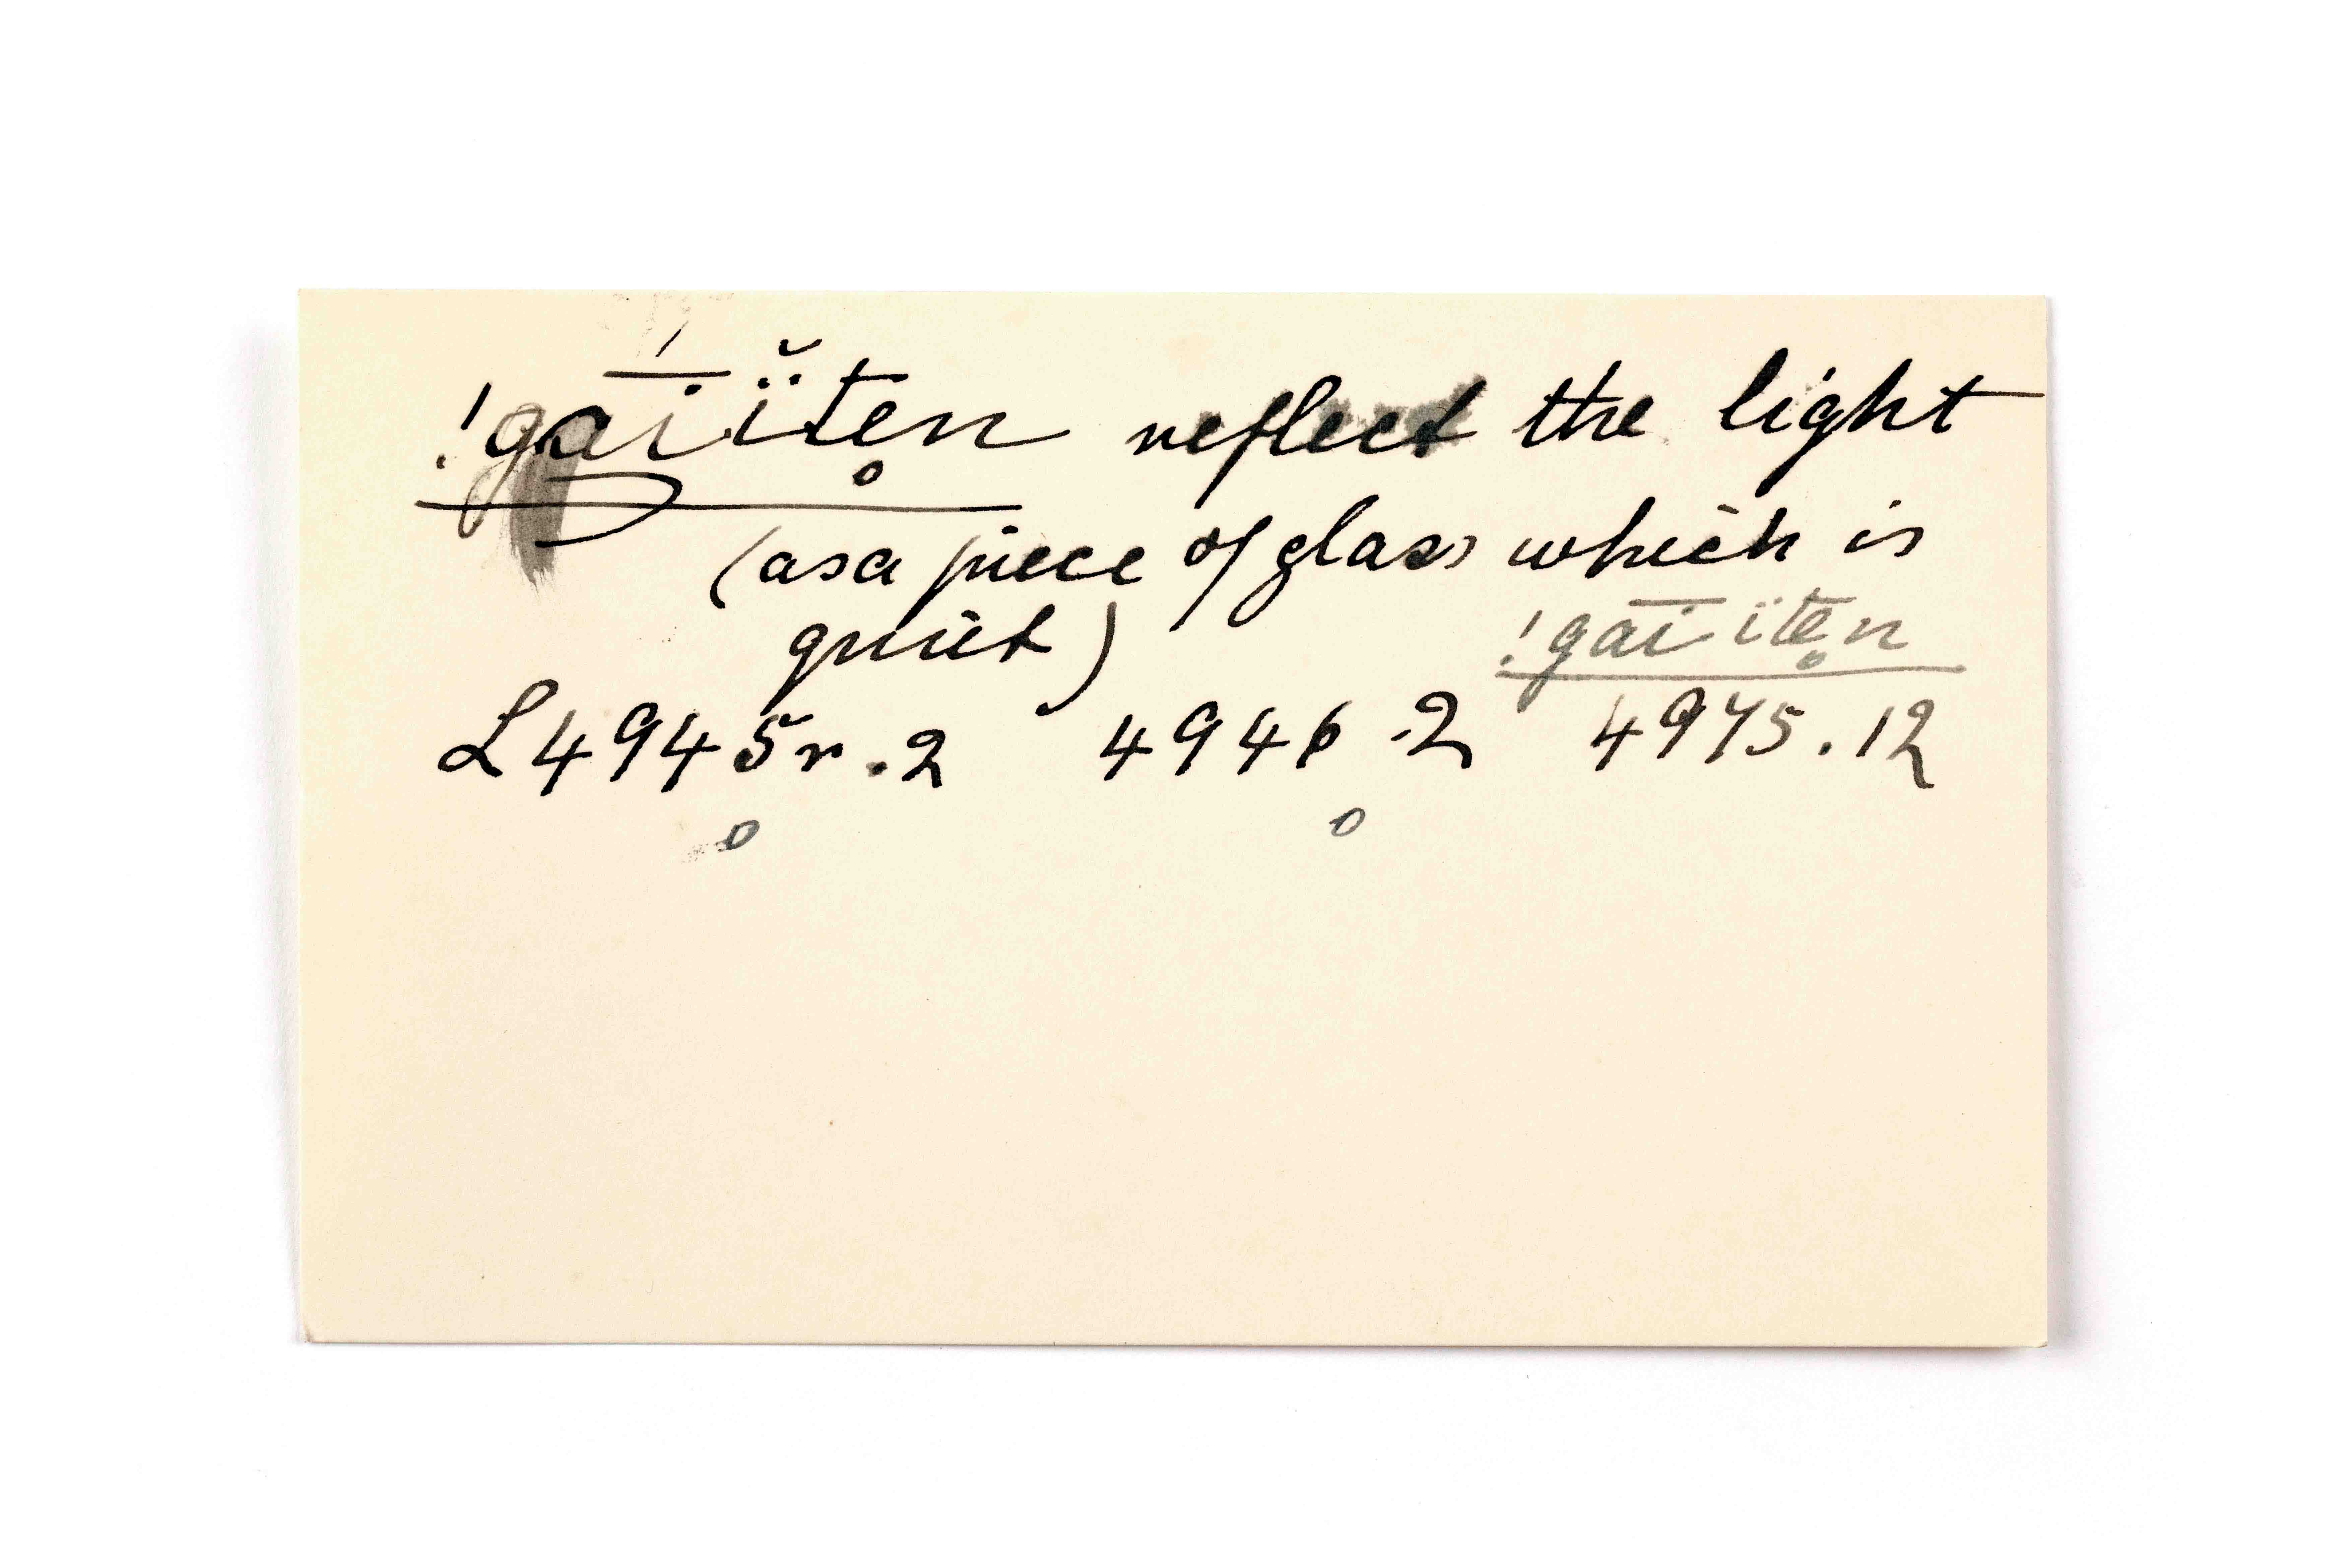 !gā́ı ï̆ten̥ reflect the light
(as a piece of glass which is
quiet) !gāı ïten̥
L4945r.2 4946.2 4975.12
o o